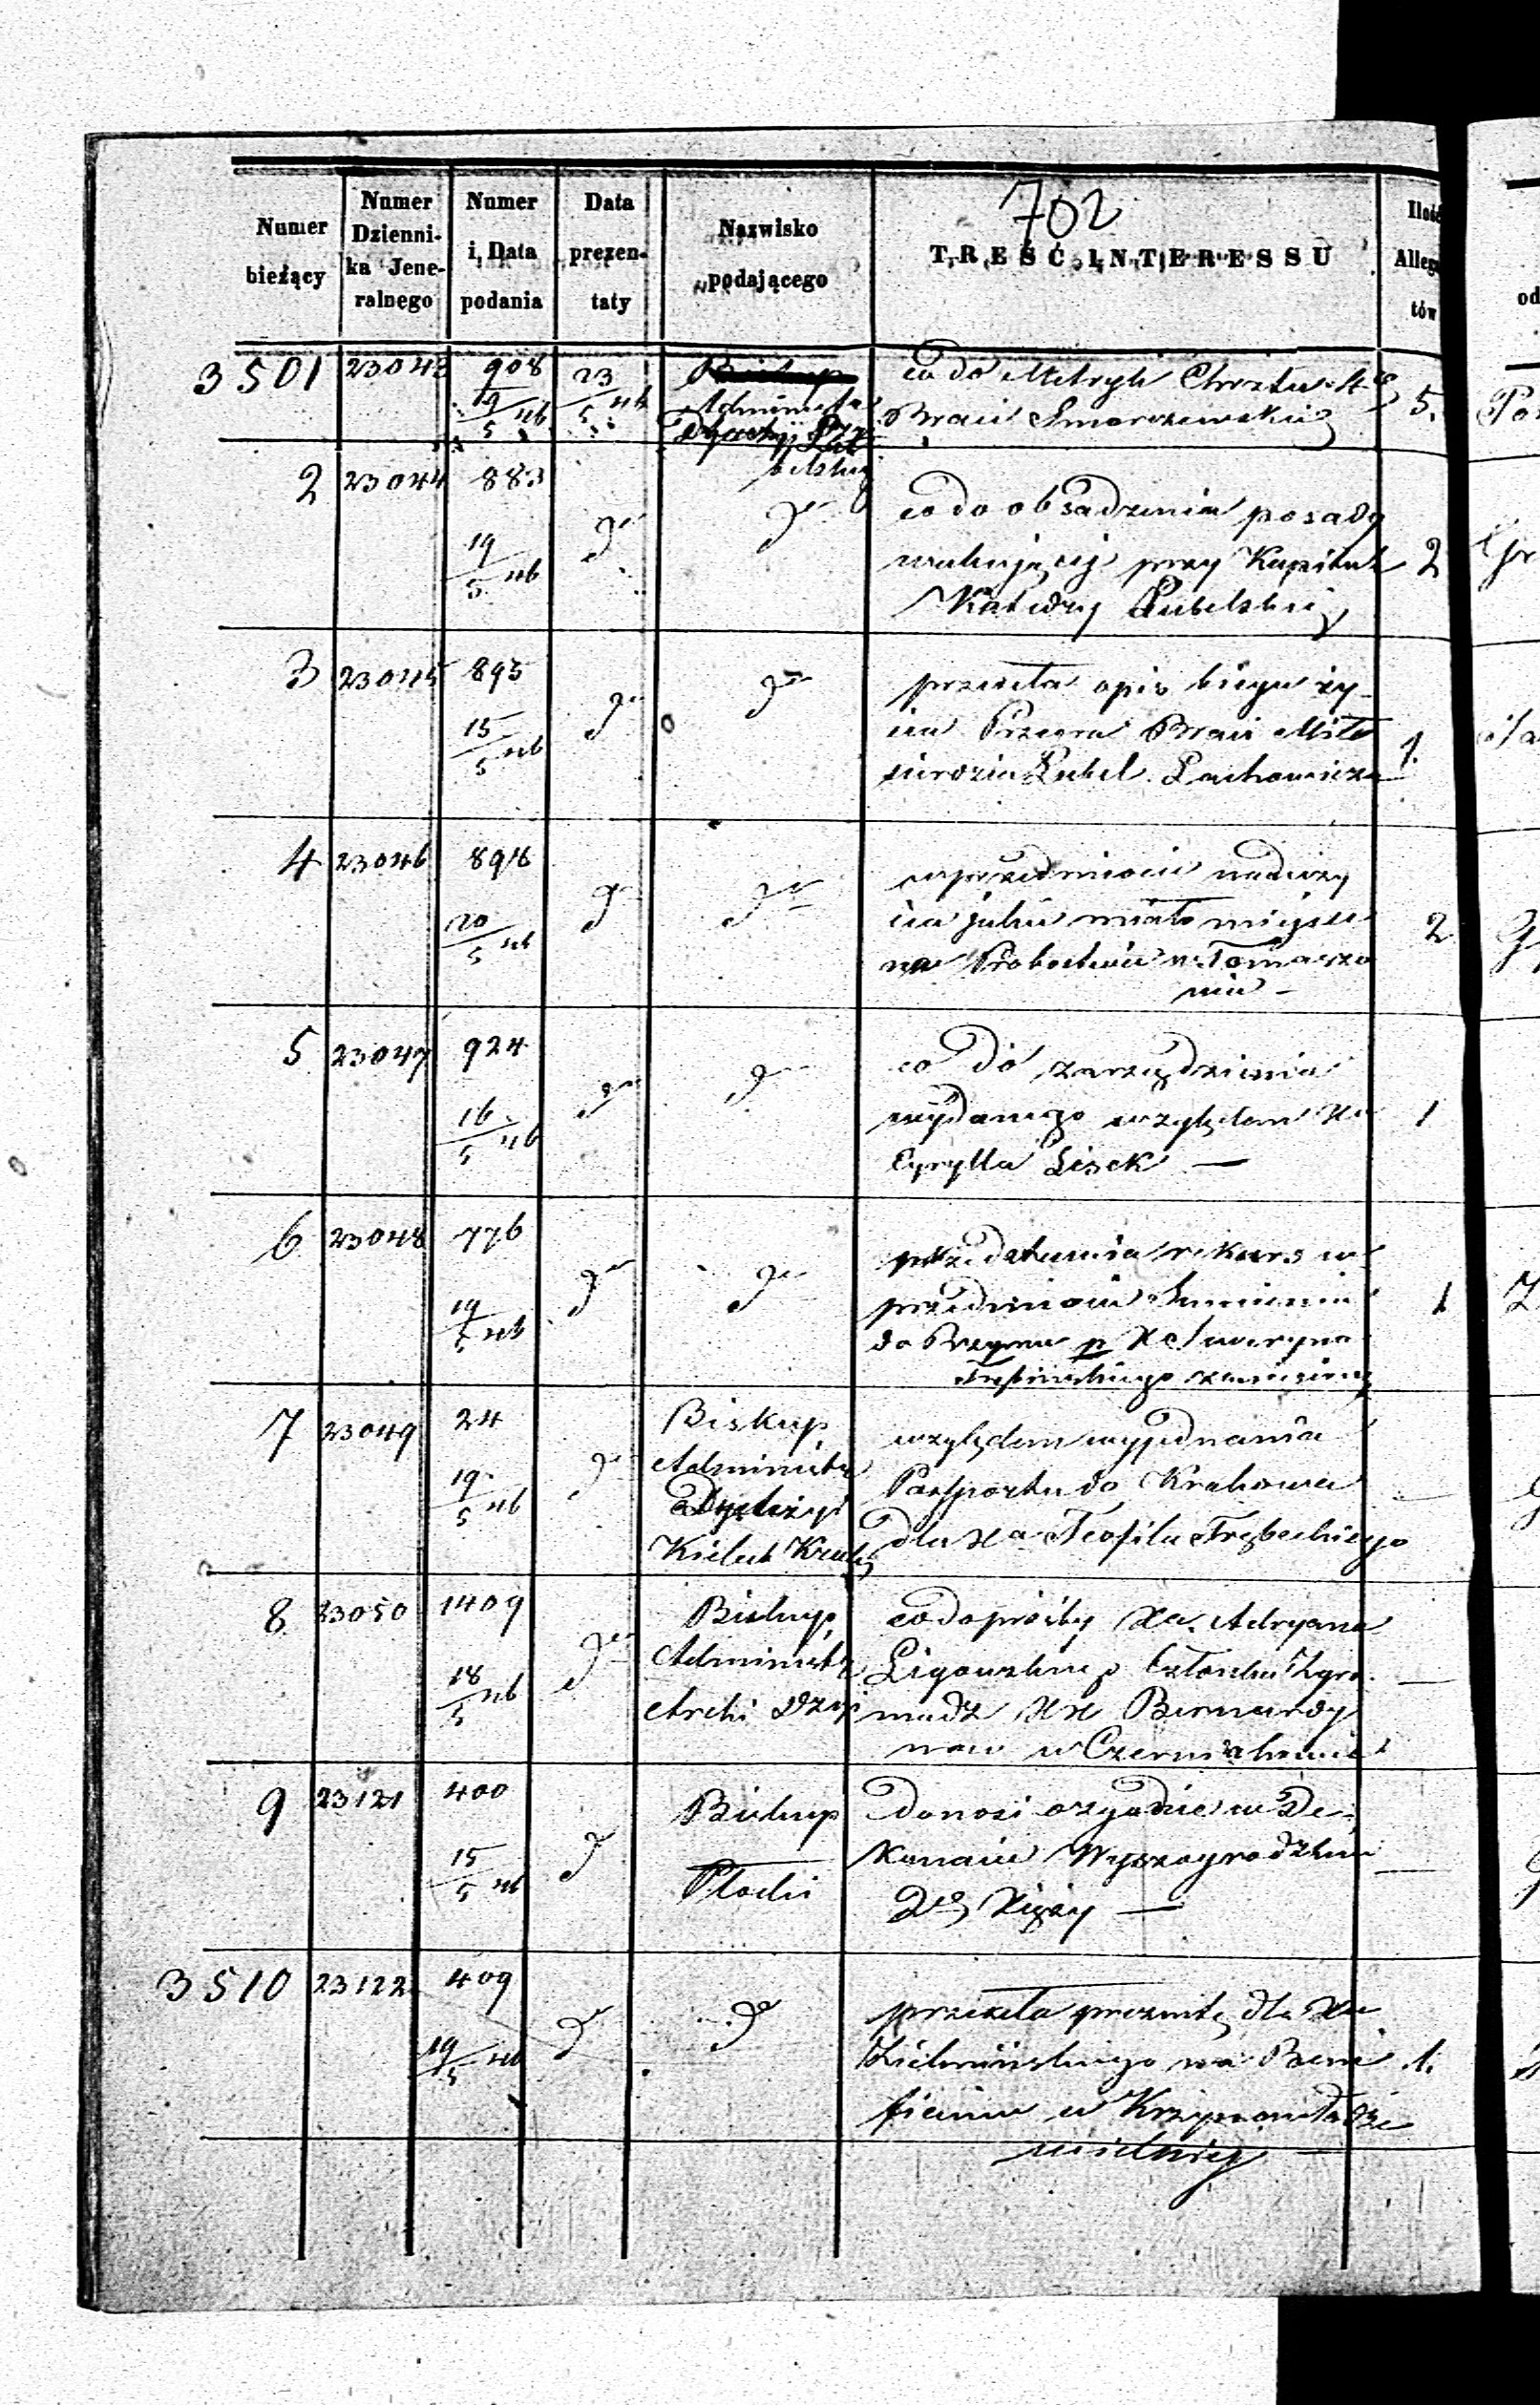 702
Numer bieżący
Numer Dziennika Jeneralnego
Numer i Data podania
Data prezentaty
Nazwisko podającego
TREŚĆ INTERESSU
Ilość
Alleg
tów
3501 23043 908 19/5 46 23/5 46
Administr
Dyecezyi
belskiej
co do Metryk Chrztu 4ch
Braci Smorczewskich
5.
2 23044 883 19/5 46 do do
co do obsadzenia posady
wakującej przy Kapitule
Katedry Lubelskiej
2
3 23045 895 15/5 46 do do
przesyła opis biegu ży-
cia Przeora Braci Miło
sierdzia Lubel. Lachowicza
1.
4 23046 898 20/5 46 do do
w przedmiocie naduży
cia jakie miało miejsce
na Probostwie w Tomaszo
wie -
2
5 23047 924 16/5 46 do do
co do zarządzenia
wydanego względem Xa
Cyrylla Lisek —
1
6 23048 776 19/5 46 do do
przedstawia rekurs w
przedmiocie
do Rzymu p X Seweryna
zaniesiony
1
7 23049 24 19/5 46 do
Biskup
Administr
Dyecezyi
Kielec Krak
względem wyjednania
Paszportu do Krakowa
dla Xa Teofila Trębeckiego
8 23050 1409 18/5 46 do
Biskup
Administr
Archi Dyec
co do prośby Xa. Adryana
Ligowskiego Członka Zgro
madz XX Bernardy
now w Czerniakowie
—
9 23121 400 15/5 46 do
Biskup
Płocki
donosi o zgodzie w De-
kanacie Wyszogrodzkim
2ch Xięży —
—
3510 23122 409 19/5 46 do do
przesyła prezentę dla Xa
Zielmińskiego na Bene
ficium w Krzynowłodze
wielkiej —
1.